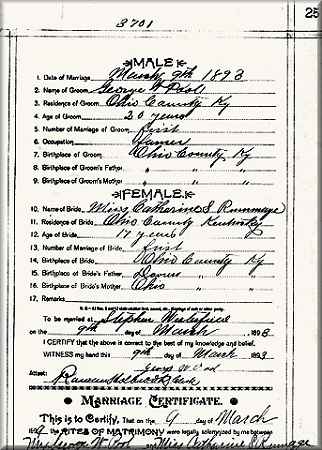 3701
25
MALE
1. Date of Marriage March 9th 1893
2. Name of Groom George W Pool
3. Residence of Groom Ohio County Ky
4. Age of Groom 20 years
5. Number of Marriage of Groom first
6. Occupation Farmer
7. Birthplace of Groom Ohio County Ky
8. Birthplace of Groom's Father " " "
9. Birthplace of Groom's Mother " " "
FEMALE.
10. Name of Bride Miss Catherine S Rummage
11. Residence of Bride Ohio County Kentucky
12. Age of Bride 17 years
13. Number of Marriage of Bride first
14. Birthplace of Bride Ohio County Ky
15. Birthplace of Bride's Father Daviess " "
16. Birthplace of Bride's Mother Ohio " "
17. Remarks
To be married at Stephen
on the 9th day of March 1893
I CERTIFY that the above is correct to the best of my knowledge and belief.
WITNESS my hand this 9th day of March 1893
George W Pool
Attest: Clerk
MARRIAGE CERTIFICATE.
This is to Certify, That on the 9 day of March
189 the RITES OF MATRIMONY were legally solemnized by me between
Mr George W. Pool and Miss Catherine S Rummage